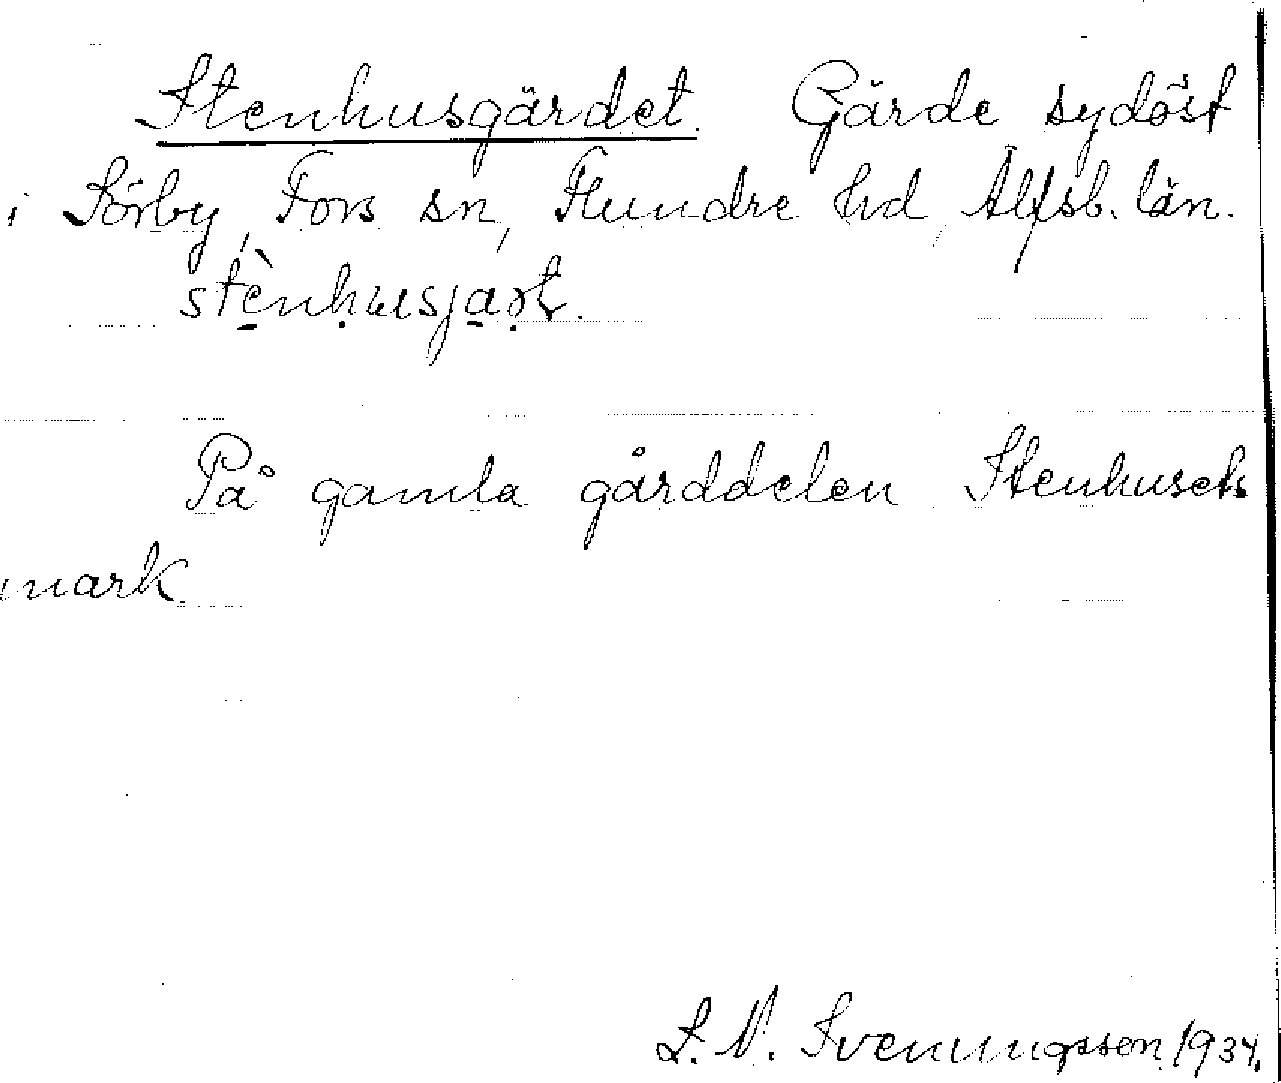 Stenhusgärdet Gärde sydöst
i Sörby, Fors sn, Flundre hd, Älfsb. län.
stènhusjaṛt.
På gamla gårddelen Stenhusets
mark.
S. N. Svenungsson 1934.